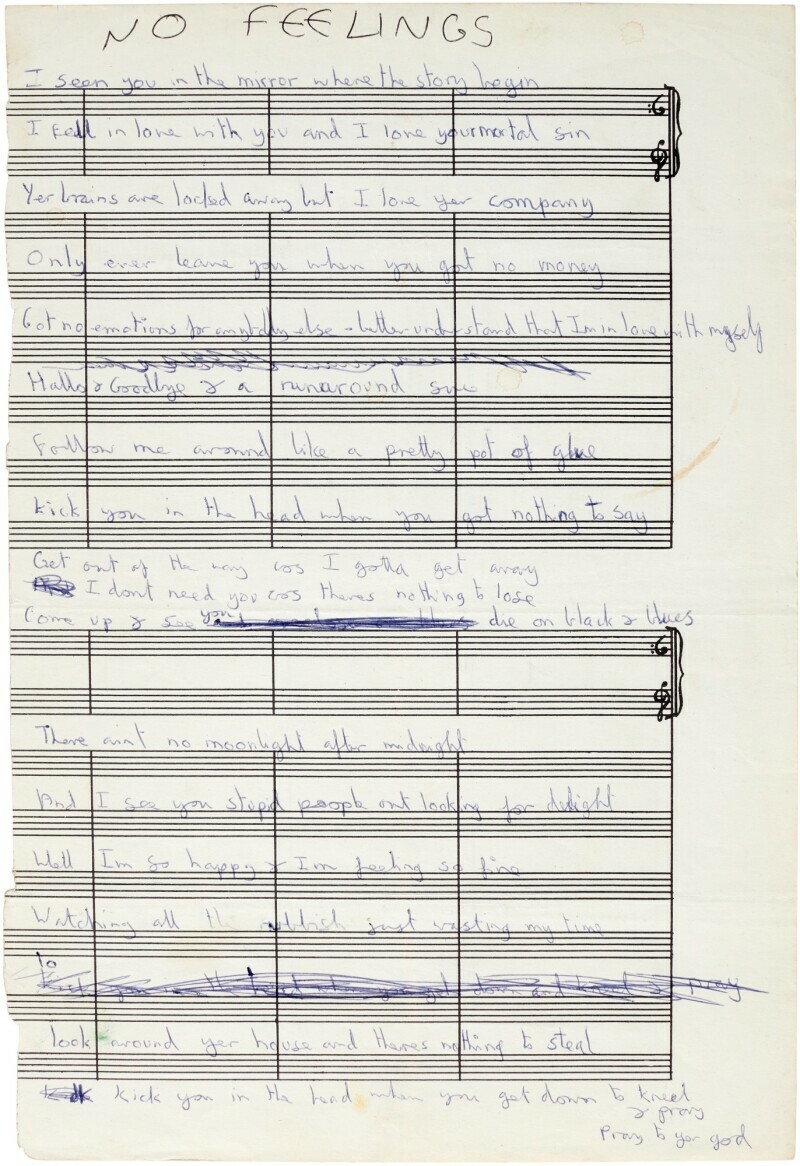 NO FEELINGS
I seen you in the mirror where the story begin
I fell in love with you and I love your mortal sin
Yer brains are locked away but I love yer company
Only ever leave you when you got no money
Got no emotions for anybody else - better understand that Im in love with myself
Hallo & Goodbye & a runaround sue
Follow me around like a pretty pot of glue
Kick you in the head when you got nothing to say
Get out of the way cos I gotta get away
I dont need you cos theres nothing to lose
Come up & see you die on black & blues
There aint no moonlight after midnight
And I see you stupid people out looking for delight
Well Im so happy & Im feeling so fine
Watching all the rubbish just wasting my time
lo
Kick you in the head when you get down and kneel & pray
look around yer house and theres nothing to steal
kick you in the head when you get down to kneel
& pray
Pray to yer god